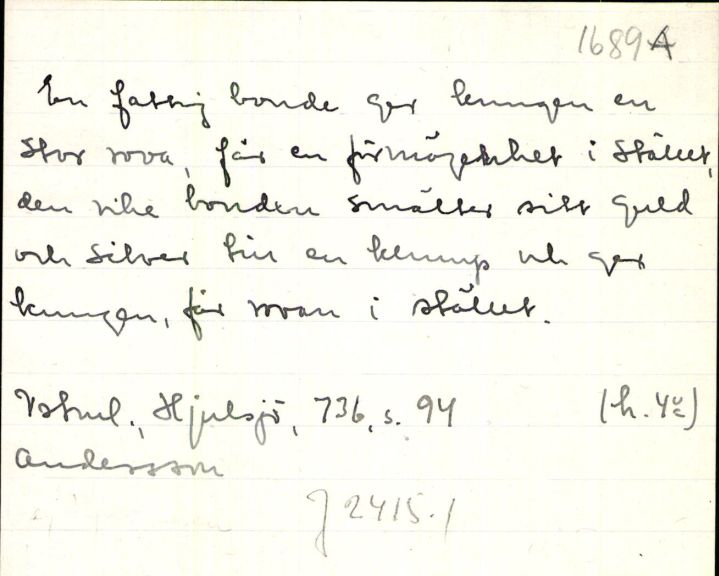 1689A
En fattig bonde ger kungen en
stor rova, får en förmögenhet i stället,
den rike bonden smälter sitt guld
och silver till en klump och ger
kungen, får rovan i stället.
Vstml., Hjulsjö, 736, s. 94 (h. 4:o)
Andersson
J 2415.1